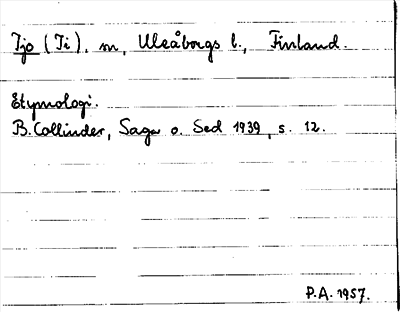 Ijo (Ii), m, Uleåborgs l., Finland.
Etymologi.
B. Collinder, Saga o. Sed 1939, s. 12.
P.A. 1957.